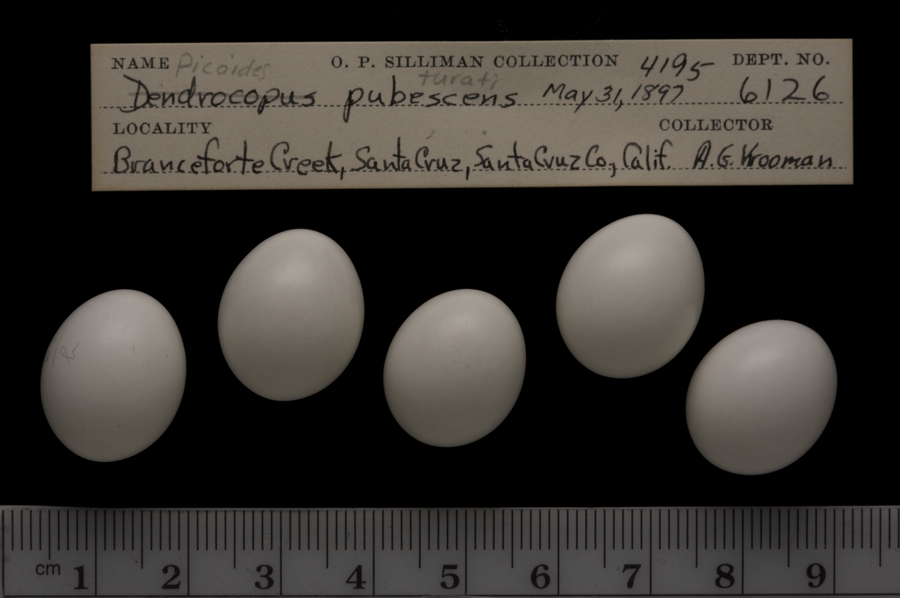 NAME Picoides O. P. SILLIMAN COLLECTION 4195 DEPT. NO.
turati
Dendrocopus pubescens May 31, 1897 6126
LOCALITY COLLECTOR
Branceforte Creek, Santa Cruz, Santa Cruz Co., Calif. A.G. Vrooman
cm 1 2 3 4 5 6 7 8 9